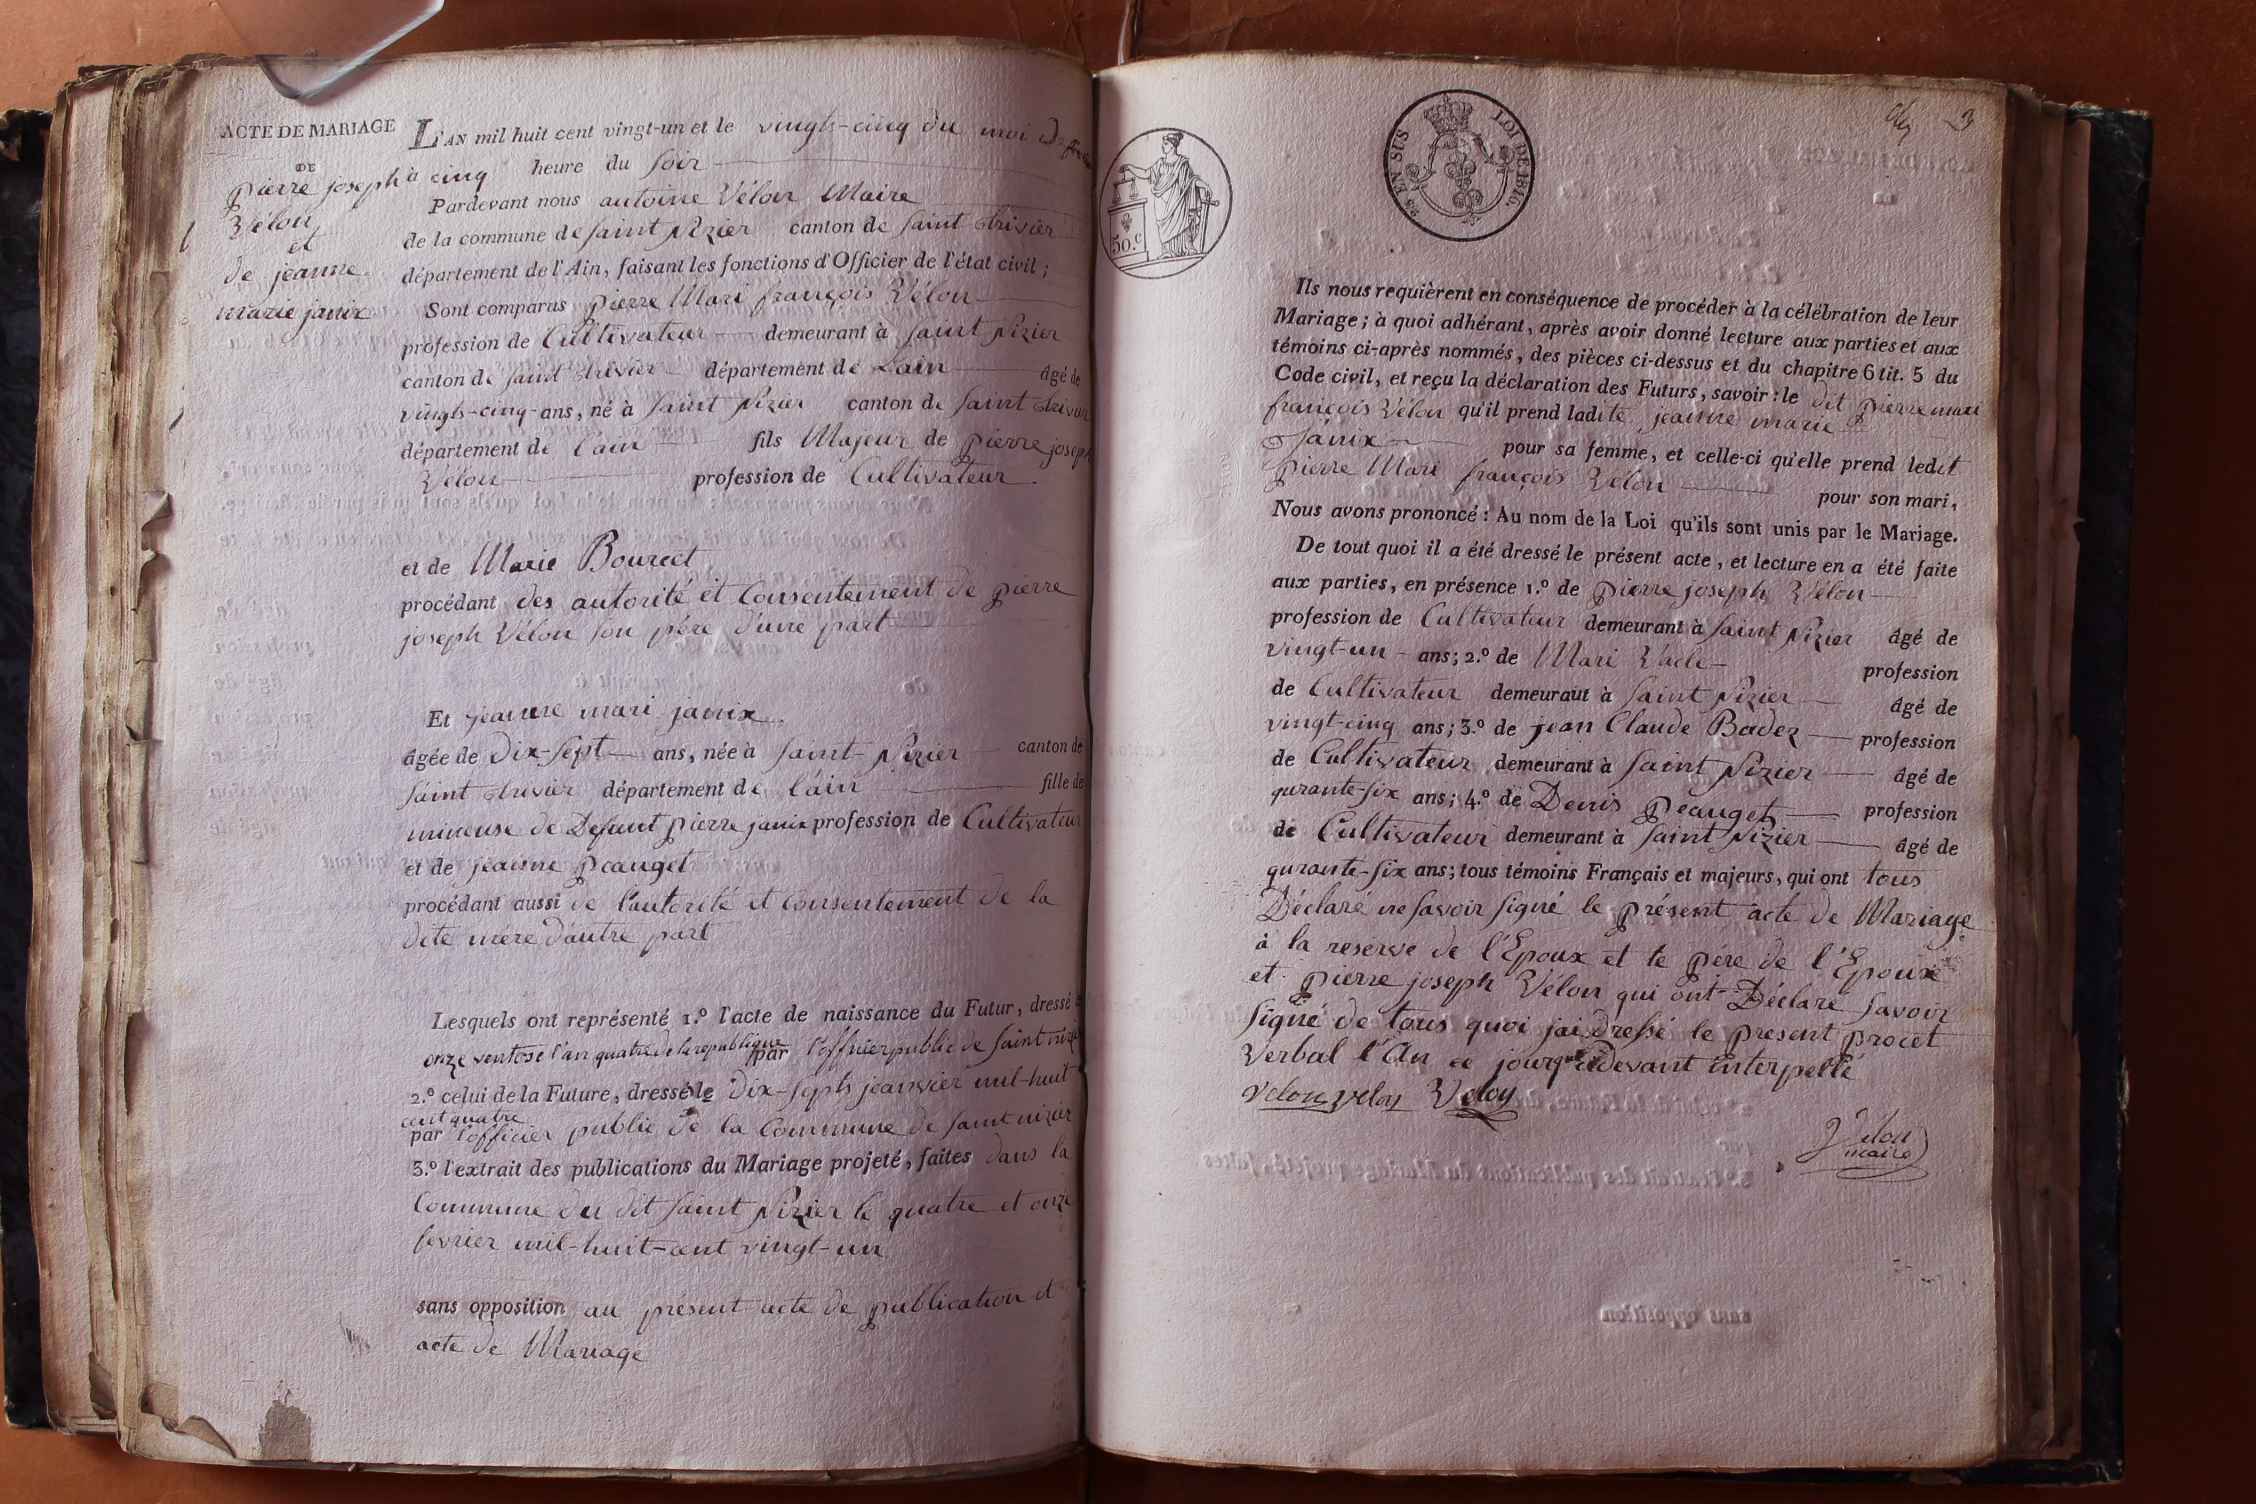 ACTE DE MARIAGE
DE
pierre joseph
Vélon
et
de jeanne
marie janix
L'AN mil huit cent vingt-un et le vingts-cinq du moi de
à cinq heure du soir
Pardevant nous antoine Vélon Maire
de la commune de saint Nizier canton de saint trivier
département de l'Ain, faisant les fonctions d'Officier de l'état civil ;
Sont comparus pierre Mari françois Vélon
profession de Cultivateur demeurant à saint Nizier
canton de saint trivier département de Lain âgé de
vingts-cinq ans, né à saint Nizier canton de saint trivier
département de l'ain fils Majeur de pierre joseph
Vélon profession de Cultivateur
et de Marie Bourcet
procédant des autorité et Consentement de pierre
joseph Vélon son père d'une part
Et jeanne mari janix
âgée de Dix-sept ans, née à saint Nizier canton de
saint trivier département de l'ain fille de
mineuse de Defunt pierre janix profession de Cultivateur
et de jeanne peauget
procédant aussi de l'autorité et Consentement de la
dite mère d'autre part
Lesquels ont représenté 1.º l'acte de naissance du Futur, dressé
onze ventose l'an quatre de la republique par l'officier public de saint nizier
2.º celui de la Future, dressé le Dix-septs jeanvier mil-huit
cent quatre
par l'officier public de la Commune de saint nizier
3.º l'extrait des publications du Mariage projeté, faites dans la
Commune du dit saint Nizier le quatre et onze
fevrier mil-huit-cent vingt-un
sans opposition au présent acte de publication et
acte de Mariage
50.c
25 EN SUS
LOI DE 1816.
3
Ils nous requièrent en conséquence de procéder à la célébration de leur
Mariage ; à quoi adhérant, après avoir donné lecture aux parties et aux
témoins ci-après nommés, des pièces ci-dessus et du chapitre 6 tit. 5 du
Code civil, et reçu la déclaration des Futurs, savoir : le dit pierre mari
françois Vélon qu'il prend ladite jeanne marie
Janix pour sa femme, et celle-ci qu'elle prend ledit
pierre Mari françois Vélon pour son mari,
Nous avons prononcé : Au nom de la Loi qu'ils sont unis par le Mariage.
De tout quoi il a été dressé le présent acte, et lecture en a été faite
aux parties, en présence 1.º de pierre joseph Vélon
profession de Cultivateur demeurant à saint Nizier âgé de
vingt-un ans ; 2.º de Mari profession
de Cultivateur demeurant à saint Nizier âgé de
vingt-cinq ans ; 3.º de jean Claude Badez profession
de Cultivateur demeurant à saint Nizier âgé de
qurante-six ans ; 4.º de Denis peauget profession
de Cultivateur demeurant à saint Nizier âgé de
qurante-six ans ; tous témoins Français et majeurs, qui ont tous
Déclaré ne savoir signé le présent acte de Mariage
à la reserve de l'Epoux et le père de l'Epoux
et pierre joseph Vélon qui ont Déclaré savoir
signé de tous quoi jai dressé le present procet
Verbal l'An ce jour que cidevant interpellé
Velon velon Veloy
Vélon
maire